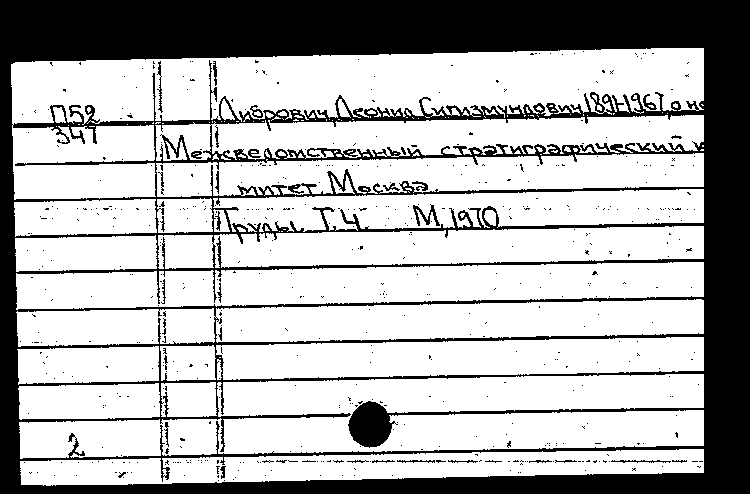 П52
347
Либрович, Леонид Сигизмундович, 1891-1967, о не
Межведомственный стратиграфический к
митет. Москва.
Труды. Т.4. М, 1970
2